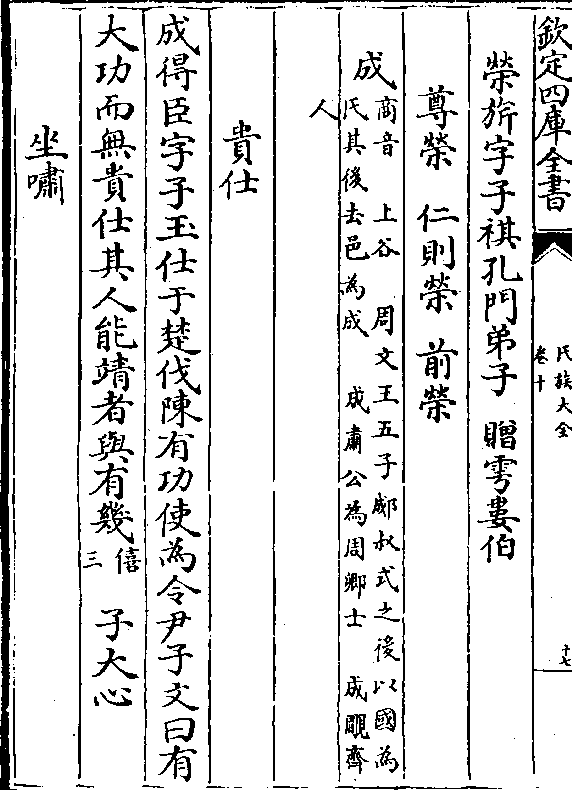 欽定四庫全書
氏族大全
卷十
十七
榮旂字子祺孔門弟子　贈雩婁伯
尊榮　仁則榮　前榮
成商音　上谷　周文王五子郕叔式之後以國為
氏其後去邑為成　成肅公為周卿士　成覵齊
人
貴仕
成得臣字子玉仕于楚伐陳有功使為令尹子文曰有
大功而無貴仕其人能靖者與有幾僖三　子大心
坐嘯